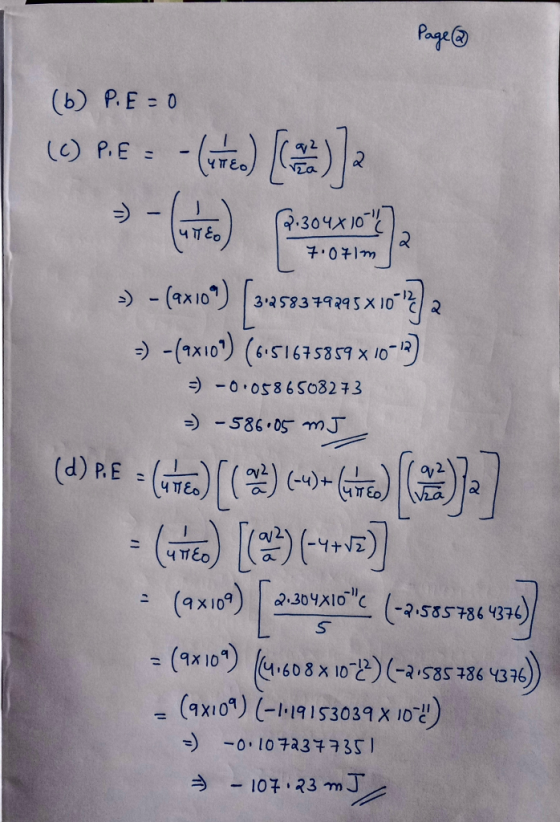 Page ②
(b) P.E = 0
(c) P.E = -(1/4πε₀) [(q²/√2a)] 2
⇒ -(1/4πε₀) [2.304×10⁻¹¹C/7.071m] 2
⇒ -(9×10⁹) [3.258379295×10⁻¹²C] 2
⇒ -(9×10⁹) (6.51675859×10⁻¹²)
⇒ -0.0586508273
⇒ -586.05 mJ
(d) P.E = (1/4πε₀) [(q²/a) (-4)+(1/4πε₀) [(q²/√2a)] 2]
= (1/4πε₀) [(q²/a) (-4+√2)]
= (9×10⁹) [2.304×10⁻¹¹C/5 (-2.5857864376)]
= (9×10⁹) ((4.608×10⁻¹²C) (-2.5857864376))
= (9×10⁹) (-1.19153039×10⁻¹¹C)
⇒ -0.1072377351
⇒ -107.23 mJ